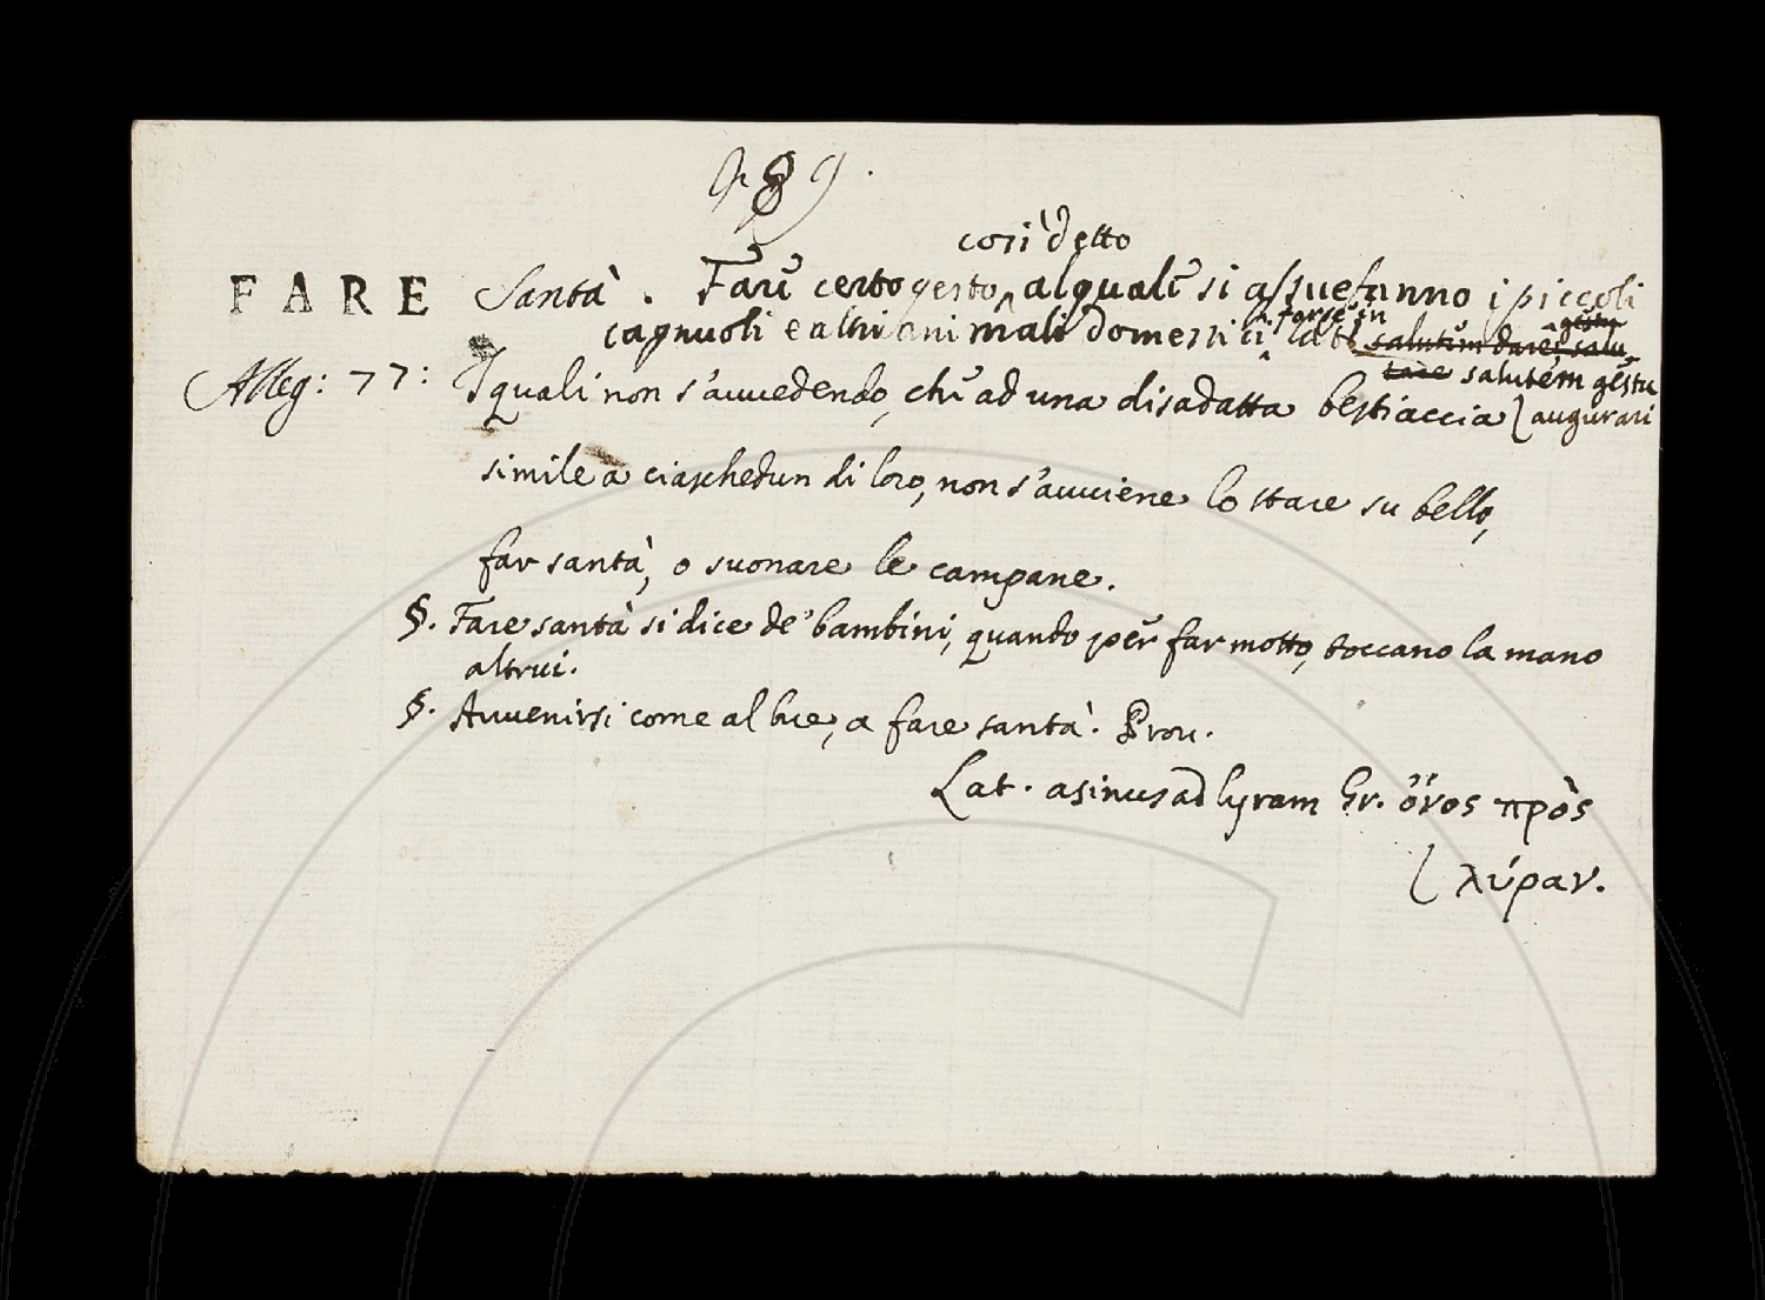 989.
così detto
FARE Santà. Fare certo gesto, al quale si assuefanno i piccoli
cagnuoli e altri animali domestici forse in Lat. salutem dare, salu-
gestu
tare salutem gestu
Alleg: 77: I quali non s'avvedendo, che ad una disadatta bestiaccia augurari
simile a ciaschedun di loro, non s'avviene lo stare su bello,
far santà, o suonare le campane.
§. Fare santà si dice de' bambini, quando per far motto, toccano la mano
altrui.
§. Avvenirsi come al bue, a fare santà. Prov.
Lat. asinus ad lyram Gr. ὄνος πρὸς
λύραν.